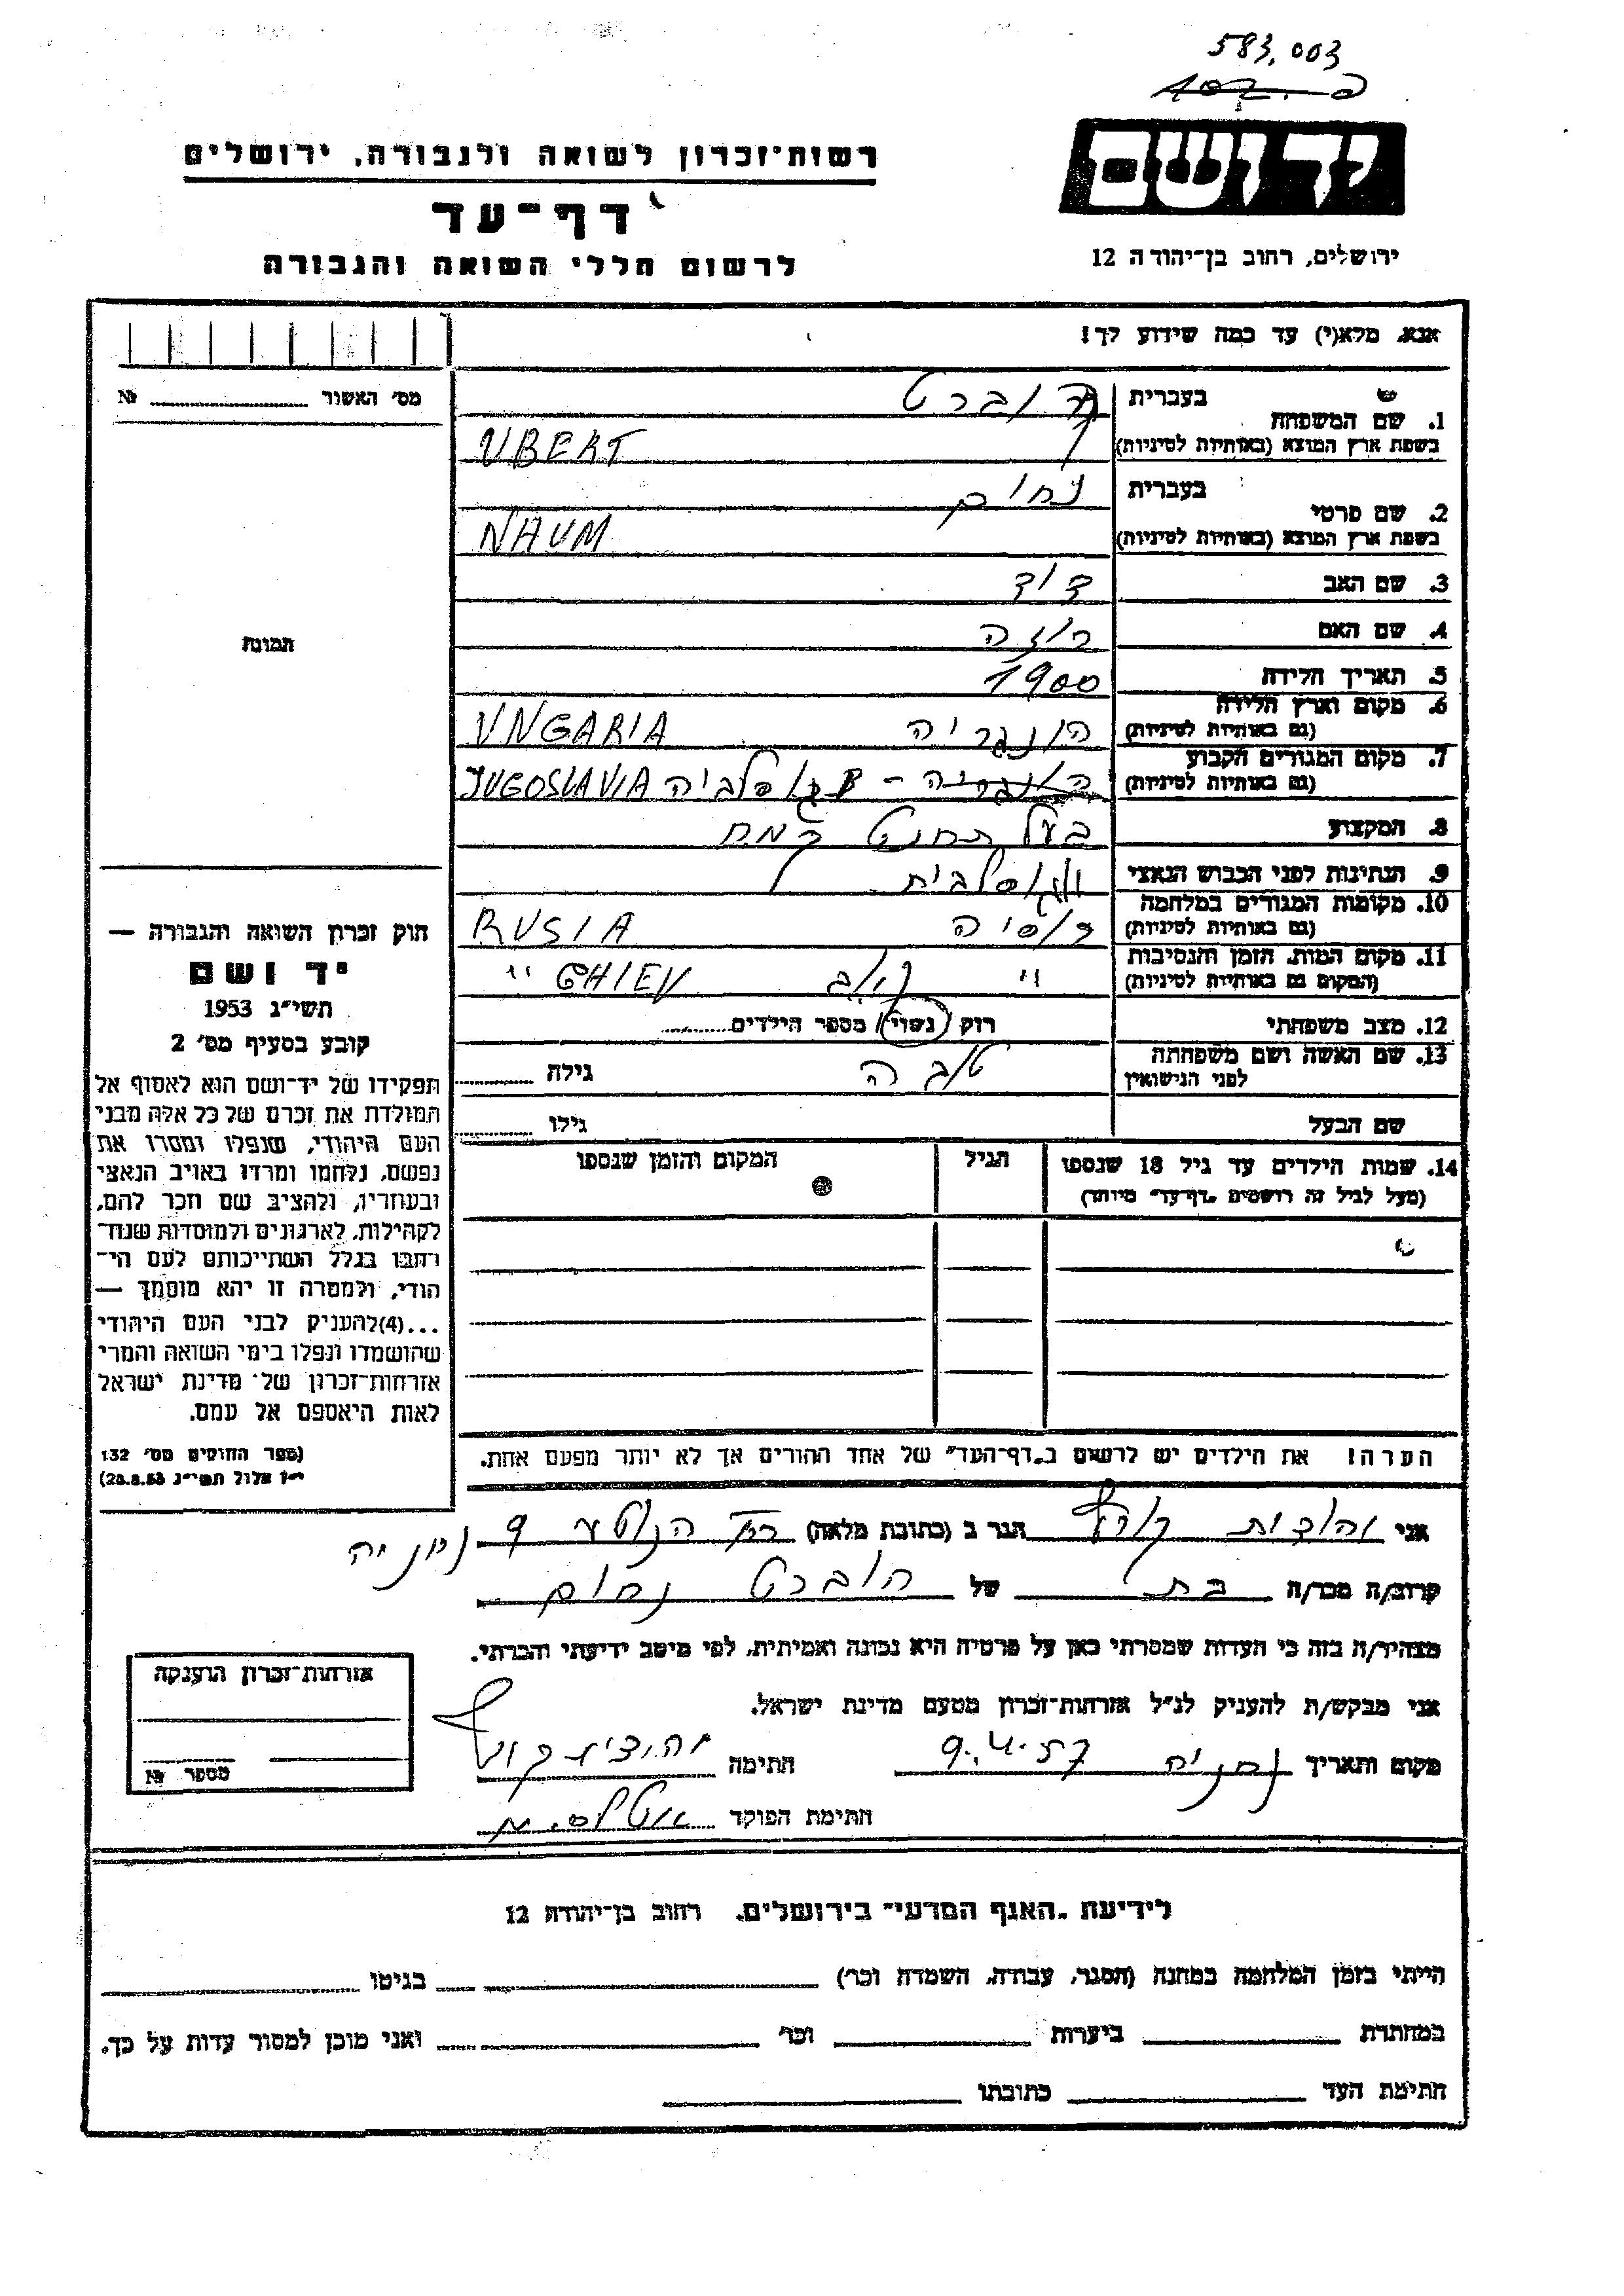 583.003
יד ושם
רשות־זכרון לשואה ולגבורה, ירושלים
דף־עד
לרשום חללי השואה והגבורה
ירושלים, רחוב בן־יהודה 12
אנא, מלא(י) עד כמה שידוע לך!
מס׳ האשור № 
1. שם המשפחה
בעברית הוברט
בשפת ארץ המוצא (באותיות לטיניות) UBERT
2. שם פרטי
בעברית נחום
בשפת ארץ המוצא (באותיות לטיניות) NAUM
3. שם האב דוד
4. שם האם רוזה
5. תאריך הלידה 1900
6. מקום וארץ הלידה הונגריה UNGARIA
(גם באותיות לטיניות)
7. מקום המגורים הקבוע הונגריה - יוגוסלביה JUGOSLAVIA
(גם באותיות לטיניות)
8. המקצוע בעל תחנת קמח
9. הנתינות לפני הכבוש הנאצי יוגוסלבית
10. מקומות המגורים במלחמה רוסיה RUSIA
(גם באותיות לטיניות)
11. מקום המות, הזמן והנסיבות " קיוב GHIEV "
(המקום גם באותיות לטיניות)
12. מצב משפחתי רווק נשוי מספר הילדים
13. שם האשה ושם משפחתה טובה גילה
לפני הנישואין
שם הבעל גילו
14. שמות הילדים עד גיל 18 שנספו הגיל המקום והזמן שנספו
(מעל לגיל זה רושמים „דף־עד״ מיוחד)
הערה! את הילדים יש לרשום ב„דף־העד״ של אחד ההורים אך לא יותר מפעם אחת.
תמונה
חוק זכרון השואה והגבורה —
יד ושם
תשי״ג 1953
קובע בסעיף מס׳ 2
תפקידו של יד־ושם הוא לאסוף אל
המולדת את זכרם של כל אלה מבני
העם היהודי, שנפלו ומסרו את
נפשם, נלחמו ומרדו באויב הנאצי
ובעוזריו, ולהציב שם וזכר להם,
לקהילות, לארגונים ולמוסדות שנח־
רבו בגלל השתייכותם לעם הי־
הודי, ולמטרה זו יהא מוסמך —
...(4)להעניק לבני העם היהודי
שהושמדו ונפלו בימי השואה והמרי
אזרחות־זכרון של מדינת ישראל
לאות היאספם אל עמם.
(ספר החוקים מס׳ 132
י״ז אלול תשי״ג 28.8.53)
אני יהודית הגר ב (כתובת מלאה) 9 נתניה
קרוב/ה מכר/ה בת של הוברט נחום
מצהיר/ה בזה כי העדות שמסרתי כאן על פרטיה היא נכונה ואמיתית, לפי מיטב ידיעתי והכרתי.
אני מבקש/ת להעניק לנ״ל אזרחות־זכרון מטעם מדינת ישראל.
מקום ותאריך נתניה 9.4.57 חתימה יהודית
חתימת הפוקד
אזרחות־זכרון הוענקה
מספר №
לידיעת „האגף המדעי״ בירושלים, רחוב בן־יהודה 12
הייתי בזמן המלחמה במחנה (הסגר, עבודה, השמדה וכו׳) בגיטו
במחתרת ביערות וכו׳ ואני מוכן למסור עדות על כך.
חתימת העד כתובתו